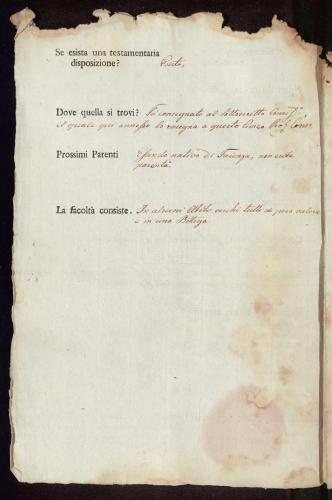 Se esista una testamentaria
disposizione? Esiste,
Dove quella si trovi? Fù consegnato al sottoscritto
il quale qui annesso lo rasegna a questo
Prossimi Parenti essendo nativo di Faenza, non esiste
parentà.
La facoltà consiste. In alcuni Abiti vecchi tutti di poco valore
e in una Botega